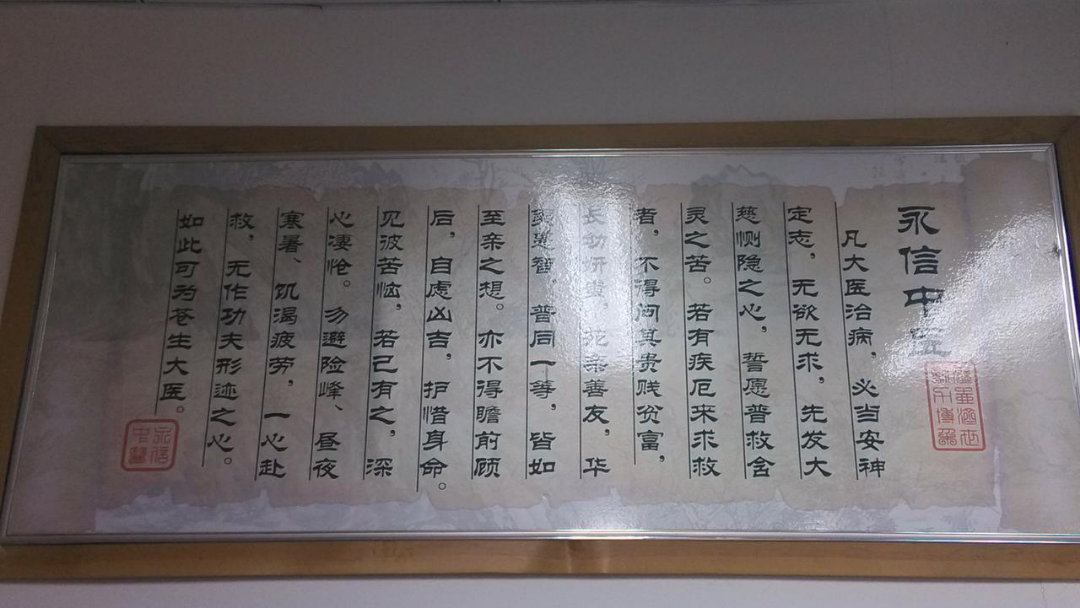 永信中医
凡大医治病，必当安神
定志，无欲无求，先发大
慈恻隐之心，誓愿普救含
灵之苦。若有疾厄来求救
者，不得问其贵贱贫富，
长幼妍蚩，怨亲善友，华
夷愚智，普同一等，皆如
至亲之想。亦不得瞻前顾
后，自虑凶吉，护惜身命。
见彼苦恼，若己有之，深
心凄怆。勿避险峰、昼夜
寒暑、饥渴疲劳，一心赴
救，无作功夫形迹之心。
如此可为苍生大医。
永信
中醫